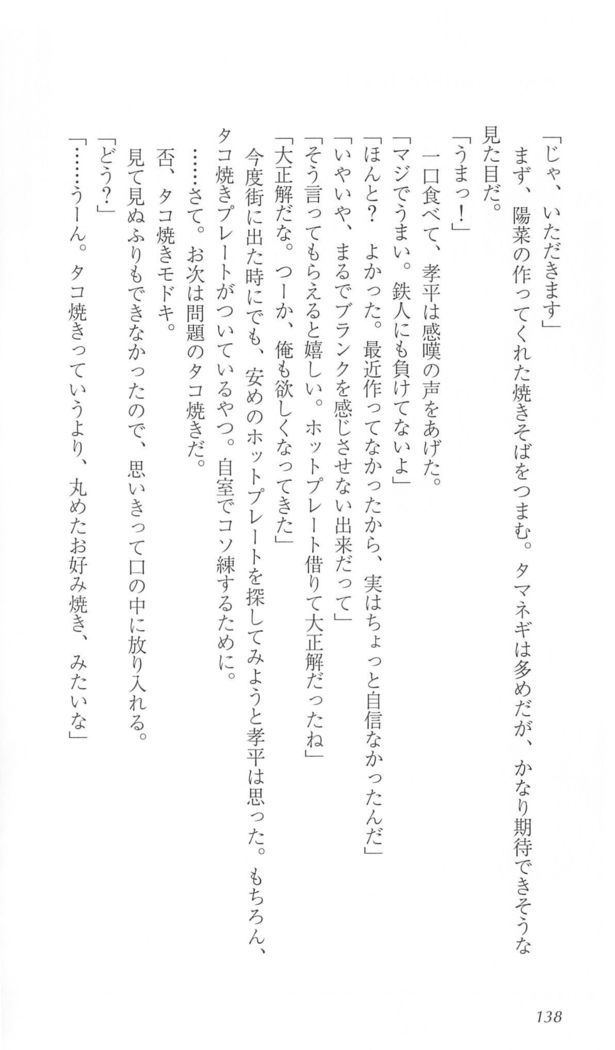 「じゃ、いただきます」
　まず、陽菜の作ってくれた焼きそばをつまむ。タマネギは多めだが、かなり期待できそうな
見た目だ。
「うまっ！」
　一口食べて、孝平は感嘆の声をあげた。
「マジでうまい。鉄人にも負けてないよ」
「ほんと？　よかった。最近作ってなかったから、実はちょっと自信なかったんだ」
「いやいや、まるでブランクを感じさせない出来だって」
「そう言ってもらえると嬉しい。ホットプレート借りて大正解だったね」
「大正解だな。つーか、俺も欲しくなってきた」
　今度街に出た時にでも、安めのホットプレートを探してみようと孝平は思った。もちろん、
タコ焼きプレートがついているやつ。自室でコソ練するために。
　……さて。お次は問題のタコ焼きだ。
　否、タコ焼きモドキ。
　見て見ぬふりもできなかったので、思いきって口の中に放り入れる。
「どう？」
「……うーん。タコ焼きっていうより、丸めたお好み焼き、みたいな」
138